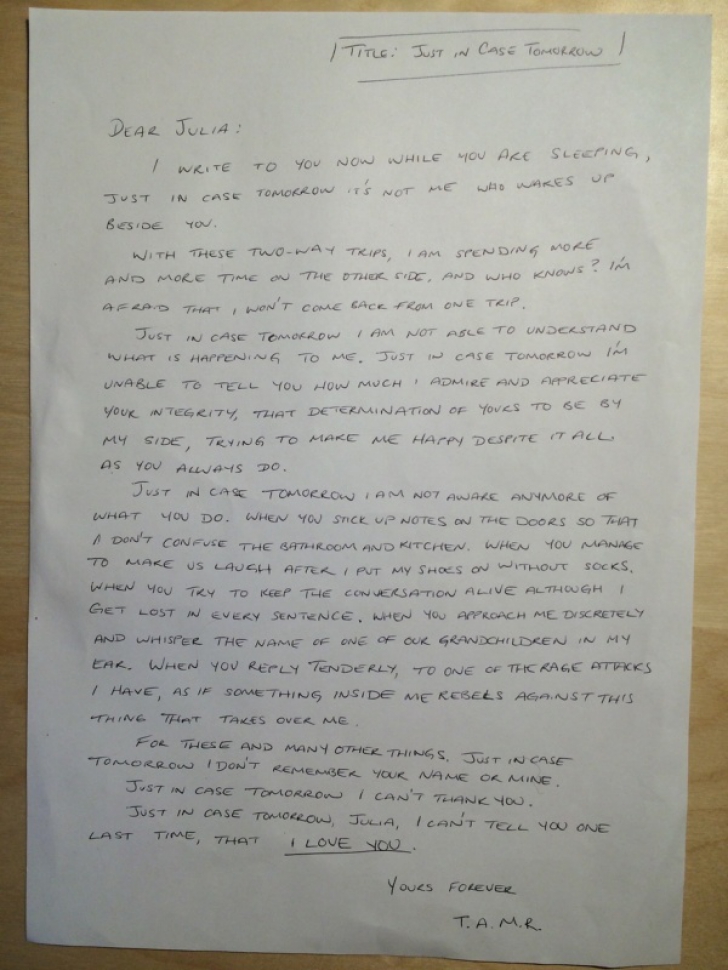 / TITLE: JUST IN CASE TOMORROW /
DEAR JULIA:
I WRITE TO YOU NOW WHILE YOU ARE SLEEPING,
JUST IN CASE TOMORROW IT'S NOT ME WHO WAKES UP
BESIDE YOU.
WITH THESE TWO-WAY TRIPS, I AM SPENDING MORE
AND MORE TIME ON THE OTHER SIDE, AND WHO KNOWS? I'M
AFRAID THAT I WON'T COME BACK FROM ONE TRIP.
JUST IN CASE TOMORROW I AM NOT ABLE TO UNDERSTAND
WHAT IS HAPPENING TO ME. JUST IN CASE TOMORROW I'M
UNABLE TO TELL YOU HOW MUCH I ADMIRE AND APPRECIATE
YOUR INTEGRITY, THAT DETERMINATION OF YOURS TO BE BY
MY SIDE, TRYING TO MAKE ME HAPPY DESPITE IT ALL.
AS YOU ALWAYS DO.
JUST IN CASE TOMORROW I AM NOT AWARE ANYMORE OF
WHAT YOU DO. WHEN YOU STICK UP NOTES ON THE DOORS SO THAT
I DON'T CONFUSE THE BATHROOM AND KITCHEN. WHEN YOU MANAGE
TO MAKE US LAUGH AFTER I PUT MY SHOES ON WITHOUT SOCKS.
WHEN YOU TRY TO KEEP THE CONVERSATION ALIVE ALTHOUGH I
GET LOST IN EVERY SENTENCE. WHEN YOU APPROACH ME DISCRETELY
AND WHISPER THE NAME OF ONE OF OUR GRANDCHILDREN IN MY
EAR. WHEN YOU REPLY TENDERLY, TO ONE OF THE RAGE ATTACKS
I HAVE, AS IF SOMETHING INSIDE ME REBELS AGAINST THIS
THING THAT TAKES OVER ME.
FOR THESE AND MANY OTHER THINGS. JUST IN CASE
TOMORROW I DON'T REMEMBER YOUR NAME OR MINE.
JUST IN CASE TOMORROW I CAN'T THANK YOU.
JUST IN CASE TOMORROW, JULIA, I CAN'T TELL YOU ONE
LAST TIME, THAT I LOVE YOU.
YOURS FOREVER
T.A.M.R.